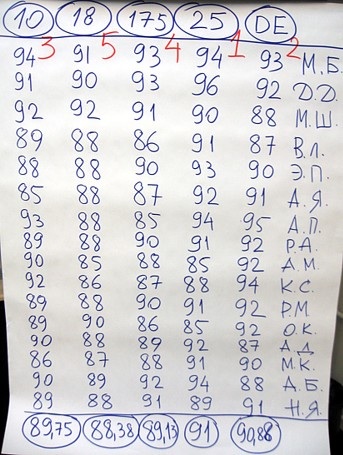 10 18 175 25 DE
94 3 91 5 93 4 94 1 93 2 М.Б.
91 90 93 96 92 Д.Д.
92 92 91 90 88 М.Ш.
89 88 86 91 87 В.Л.
88 88 90 93 90 Э.П.
85 88 87 92 91 А.Я.
93 88 85 94 95 А.П.
89 88 90 91 92 Р.А.
90 85 88 85 92 А.М.
92 86 87 88 94 К.С.
89 88 90 91 92 Р.М
89 90 86 85 92 О.К.
90 88 89 92 87 А.Д
86 87 88 91 90 М.К.
90 89 92 94 88 А.Б.
89 88 91 89 91 Н.Я.
89,75 88,38 89,13 91 90,88